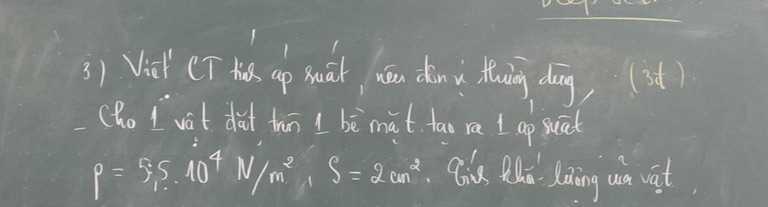 3) Viết CT tính áp suất, nêu đơn vị thường dùng, (3đ)
- Cho 1 vật đặt trên 1 bề mặt tạo ra 1 áp suất
p = 5,5.10⁴ N/m², S = 2cm². Tính khối lượng của vật.